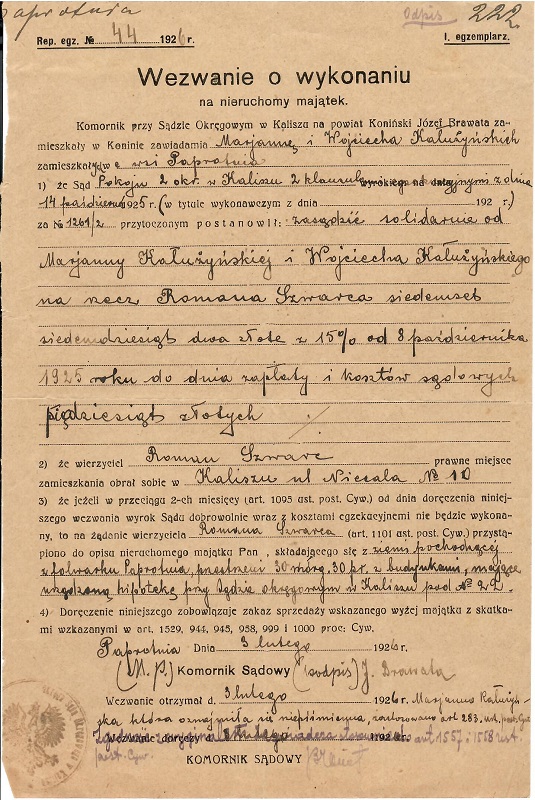 Paprotnia
Odpis
222
Rep. egz. № 44 1926 r.
I. egzemplarz.
Wezwanie o wykonaniu
na nieruchomy majątek.
Komornik przy Sądzie Okręgowym w Kaliszu na powiat Koniński Józef Brawata za-
mieszkały w Koninie zawiadamia Marjannę i Wojciecha Kałużyńskich
zamieszkałych we wsi Paprotnia
1) że Sąd Pokoju 2 okr. w Kaliszu 2 klauzulą z dnia
14 października 1925 r. (w tytule wykonawczym z dnia 192 r.)
za № 1261/2 przytoczonym postanowił: zasądzić solidarnie od
Marjanny Kałużyńskiej i Wojciecha Kałużyńskiego
na rzecz Romana Szwarca siedemset
siedemdziesiąt dwa złote z 15% od 8 października
1925 roku do dnia zapłaty i kosztów sądowych
pięćdziesiąt złotych
2) że wierzyciel Roman Szwarc prawne miejsce
zamieszkania obrał sobie w Kaliszu ul Niecała № 10
3) że jeżeli w przeciągu 2-ch miesięcy (art. 1095 ust. post. Cyw.) od dnia doręczenia niniej-
szego wezwania wyrok Sądu dobrowolnie wraz z kosztami egzekucyjnemi nie będzie wykona-
ny, to na żądanie wierzyciela Romana Szwarca (art. 1101 ust. post. Cyw.) przystą-
piono do opisu nieruchomego majątku Pan , składającego się z ziemi pochodzącej
z folwarku Paprotnia, przestrzeni 30 mórg. 30 pr. z budynkami, mające
urządzoną hipotekę przy Sądzie okręgowym w Kaliszu pod № 22.
4) Doręczenie niniejszego zobowiązuje zakaz sprzedaży wskazanego wyżej majątku z skutka-
mi wzkazanymi w art. 1529, 944, 945, 958, 999 i 1000 proc: Cyw.
Paprotnia Dnia 3 lutego 1926 r.
(M. P.) Komornik Sądowy (podpis) J. Brawata
Wezwanie otrzymał d. 3 lutego 1926 r. Marjanna Kałużyń-
ska która oznajmiła się niepiśmienna, zastosowano art 283. ust. post. Cyw.
Wezwanie doręczył d. lutego 192 r. art 1557 i 1558 ust.
post. Cyw.
KOMORNIK SĄDOWY